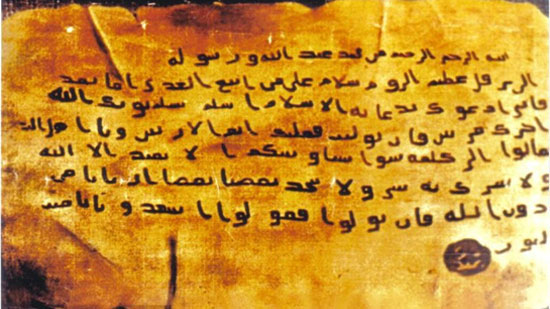 بسم الله الرحمن الرحيم من محمد عبد الله ورسوله
الى هرقل عظيم الروم سلام على من اتبع الهدى اما بعد
فانى ادعوك بدعاية الاسلام اسلم تسلم يوتك الله
اجرك مرتين فان توليت فعليك اثم الاريسين ويا اهل
تعالوا الى كلمة سوا بيننا وبينكم الا نعبد الا الله
ولا نشرك به ولا يتخذ بعضنا بعضا اربابا من
دون الله فان تولوا فقولوا اشهدوا بانا مس
لمون